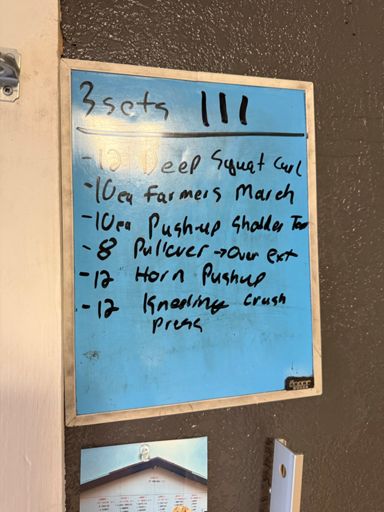 3 sets III
- 12 Deep Squat Curl
- 10ea Farmers March
- 10ea Push-up Sholder Tap
- 8 Pullover → Over ext
- 12 Horn Pushup
- 12 Kneeling Crush
Press